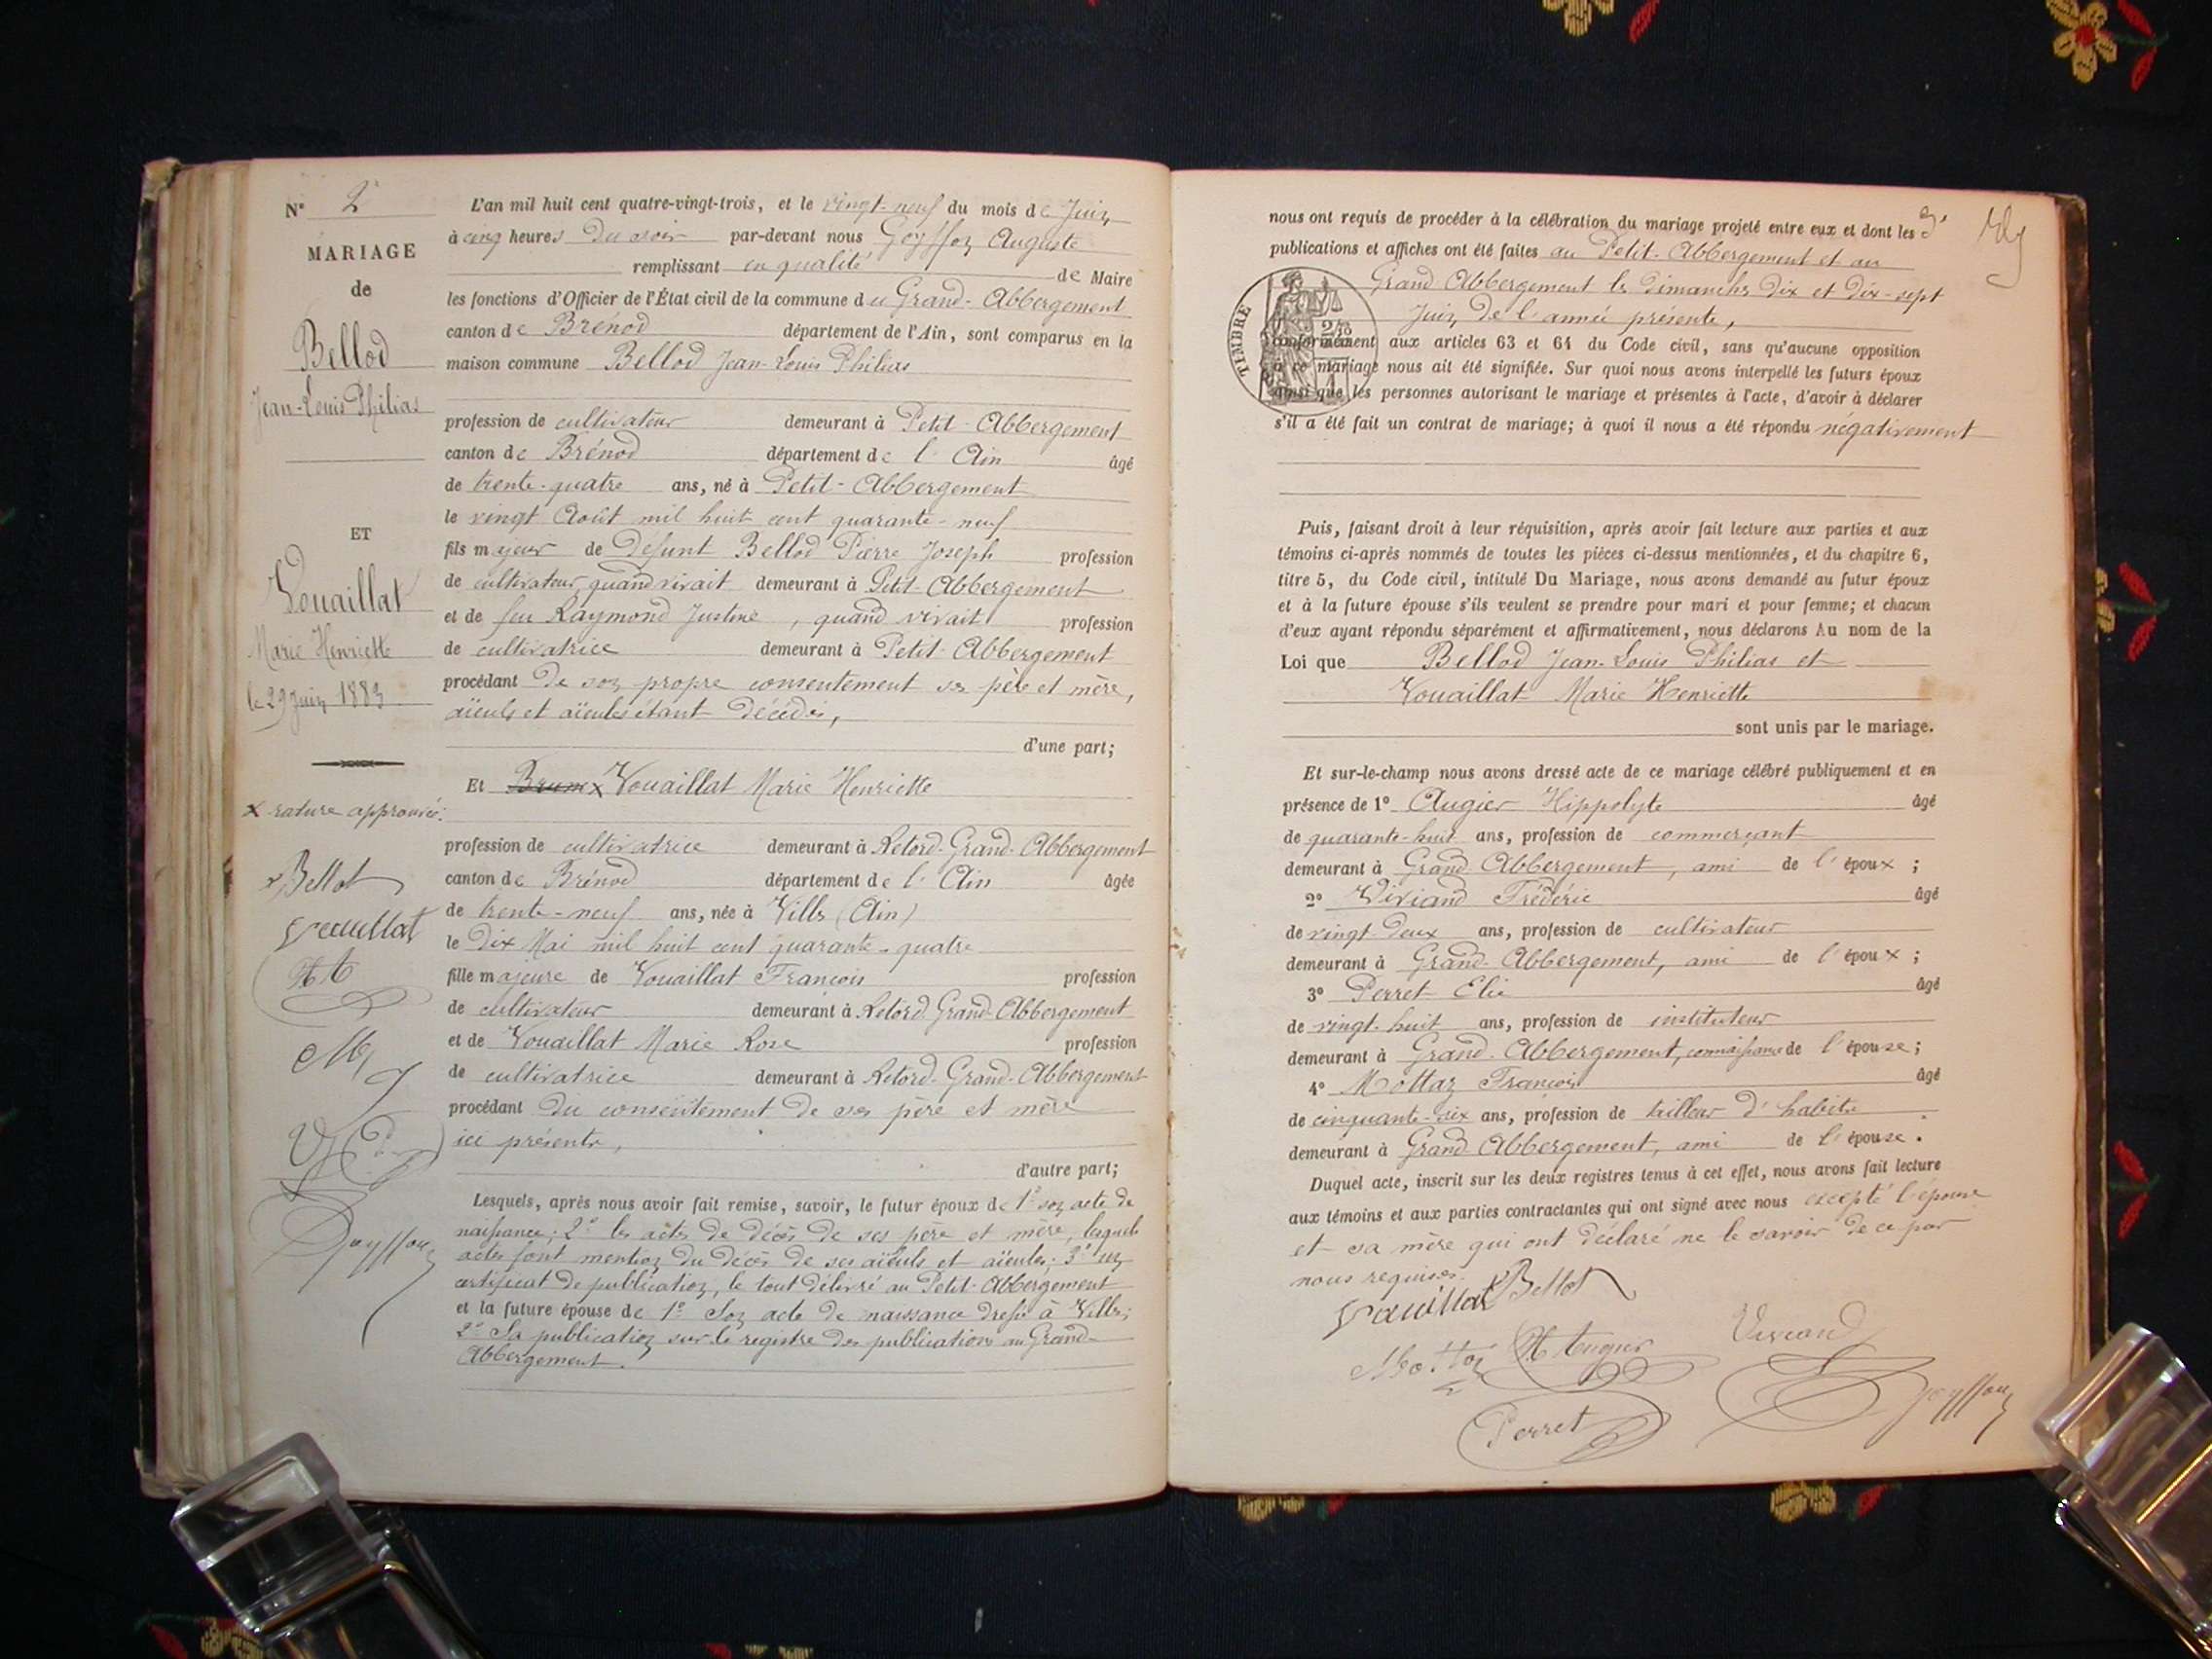 N° 2
MARIAGE
de
Bellod
Jean-Louis Philias
ET
Vouaillat
Marie Henriette
le 29 Juin 1883
x rature approuvée:
Bellot
Vauillat
HA
L'an mil huit cent quatre-vingt-trois, et le vingt-neuf du mois de Juin
à cinq heures du soir par-devant nous Goyffon Auguste
remplissant en qualité de Maire
les fonctions d'Officier de l'État civil de la commune du Grand-Abbergement
canton de Brénod département de l'Ain, sont comparus en la
maison commune Bellod Jean-Louis Philias
profession de cultivateur demeurant à Petit-Abbergement
canton de Brénod département de l'Ain âgé
de trente-quatre ans, né à Petit-Abbergement
le vingt Août mil huit cent quarante-neuf
fils majeur de défunt Bellod Pierre Joseph profession
de cultivateur, quand vivait demeurant à Petit-Abbergement
et de feu Raymond Justine, quand vivait profession
de cultivatrice demeurant à Petit-Abbergement
procédant de son propre consentement ses père et mère,
aïeuls et aïeules étant décédés,
d'une part;
Et Brun x Vouaillat Marie Henriette
profession de cultivatrice demeurant à Retord-Grand-Abbergement
canton de Brénod département de l'Ain âgée
de trente-neuf ans, née à Villes (Ain)
le dix Mai mil huit cent quarante-quatre
fille majeure de Vouaillat François profession
de cultivateur demeurant à Retord-Grand-Abbergement
et de Vouaillat Marie Rose profession
de cultivatrice demeurant à Retord-Grand-Abbergement
procédant du consentement de ses père et mère
ici présents,
d'autre part;
Lesquels, après nous avoir fait remise, savoir, le futur époux de 1° son acte de
naissance; 2° les actes de décès de ses père et mère, lesquels
actes font mention du décès de ses aïeuls et aïeules; 3° un
certificat de publication, le tout délivré au Petit-Abbergement
et la future épouse de 1° Son acte de naissance dressé à Villes;
2° Sa publication sur le registre des publications au Grand-
Abbergement.
Goyffon
nous ont requis de procéder à la célébration du mariage projeté entre eux et dont les
publications et affiches ont été faites au Petit-Abbergement et au
Grand Abbergement les dimanches dix et dix-sept
Juin de l'année présente,
TIMBRE
conformément aux articles 63 et 64 du Code civil, sans qu'aucune opposition
à ce mariage nous ait été signifiée. Sur quoi nous avons interpellé les futurs époux
ainsi que les personnes autorisant le mariage et présentes à l'acte, d'avoir à déclarer
s'il a été fait un contrat de mariage; à quoi il nous a été répondu négativement
Puis, faisant droit à leur réquisition, après avoir fait lecture aux parties et aux
témoins ci-après nommés de toutes les pièces ci-dessus mentionnées, et du chapitre 6,
titre 5, du Code civil, intitulé Du Mariage, nous avons demandé au futur époux
et à la future épouse s'ils veulent se prendre pour mari et pour femme; et chacun
d'eux ayant répondu séparément et affirmativement, nous déclarons Au nom de la
Loi que Bellod Jean-Louis Philias et
Vouaillat Marie Henriette
sont unis par le mariage.
Et sur-le-champ nous avons dressé acte de ce mariage célébré publiquement et en
présence de 1° Augier Hippolyte âgé
de quarante-huit ans, profession de commerçant
demeurant à Grand Abbergement, ami de l'époux;
2° Viviand Frédéric âgé
de vingt-deux ans, profession de cultivateur
demeurant à Grand-Abbergement, ami de l'époux;
3° Perret Elie âgé
de vingt-huit ans, profession de instituteur
demeurant à Grand-Abbergement, connaissance de l'épouse;
4° Mottaz François âgé
de cinquante-six ans, profession de tailleur d'habits
demeurant à Grand Abbergement, ami de l'épouse.
Duquel acte, inscrit sur les deux registres tenus à cet effet, nous avons fait lecture
aux témoins et aux parties contractantes qui ont signé avec nous excepté l'épouse
et sa mère qui ont déclaré ne le savoir de ce par
nous requises.
Vauillat Bellot
Mottaz H Augier Viviand
Perret Goyffon